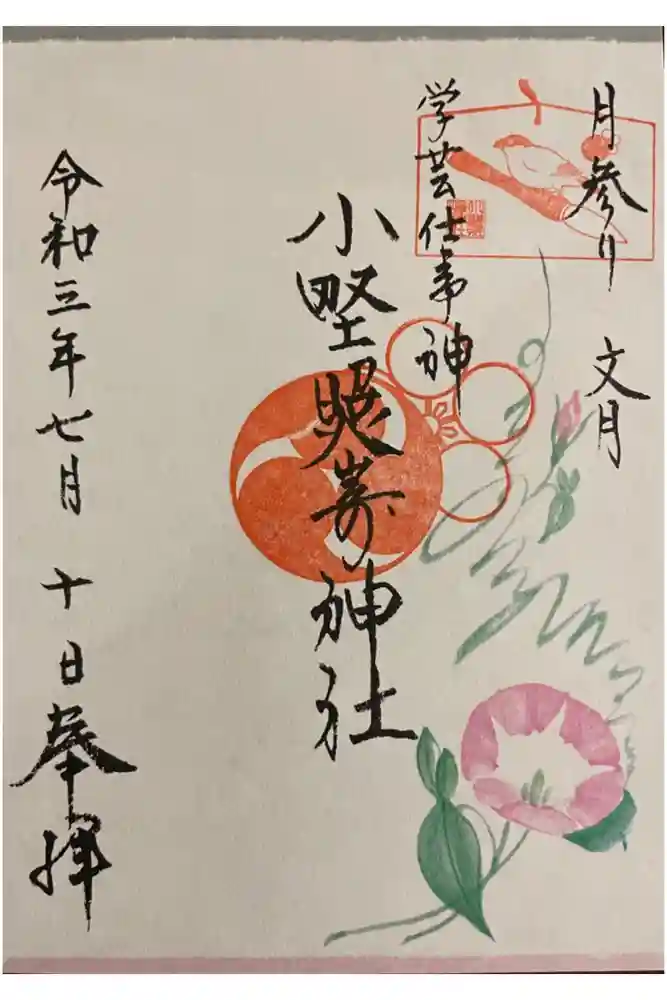 月参り 文月
学芸仕事神
小野照崎神社
令和三年七月 十日 奉拝